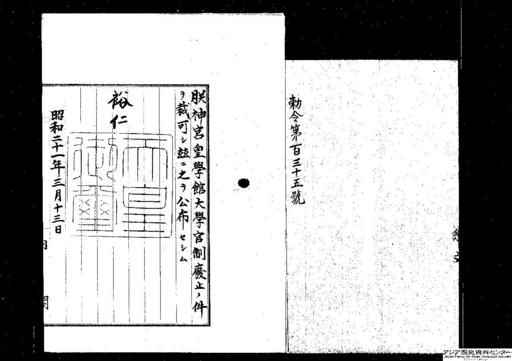 勅令第百三十五號
朕神宮皇學館大學官制廢止ノ件
ヲ裁可シ玆ニ之ヲ公布セシム
裕仁
昭和二十一年三月十三日
アジア歴史資料センター